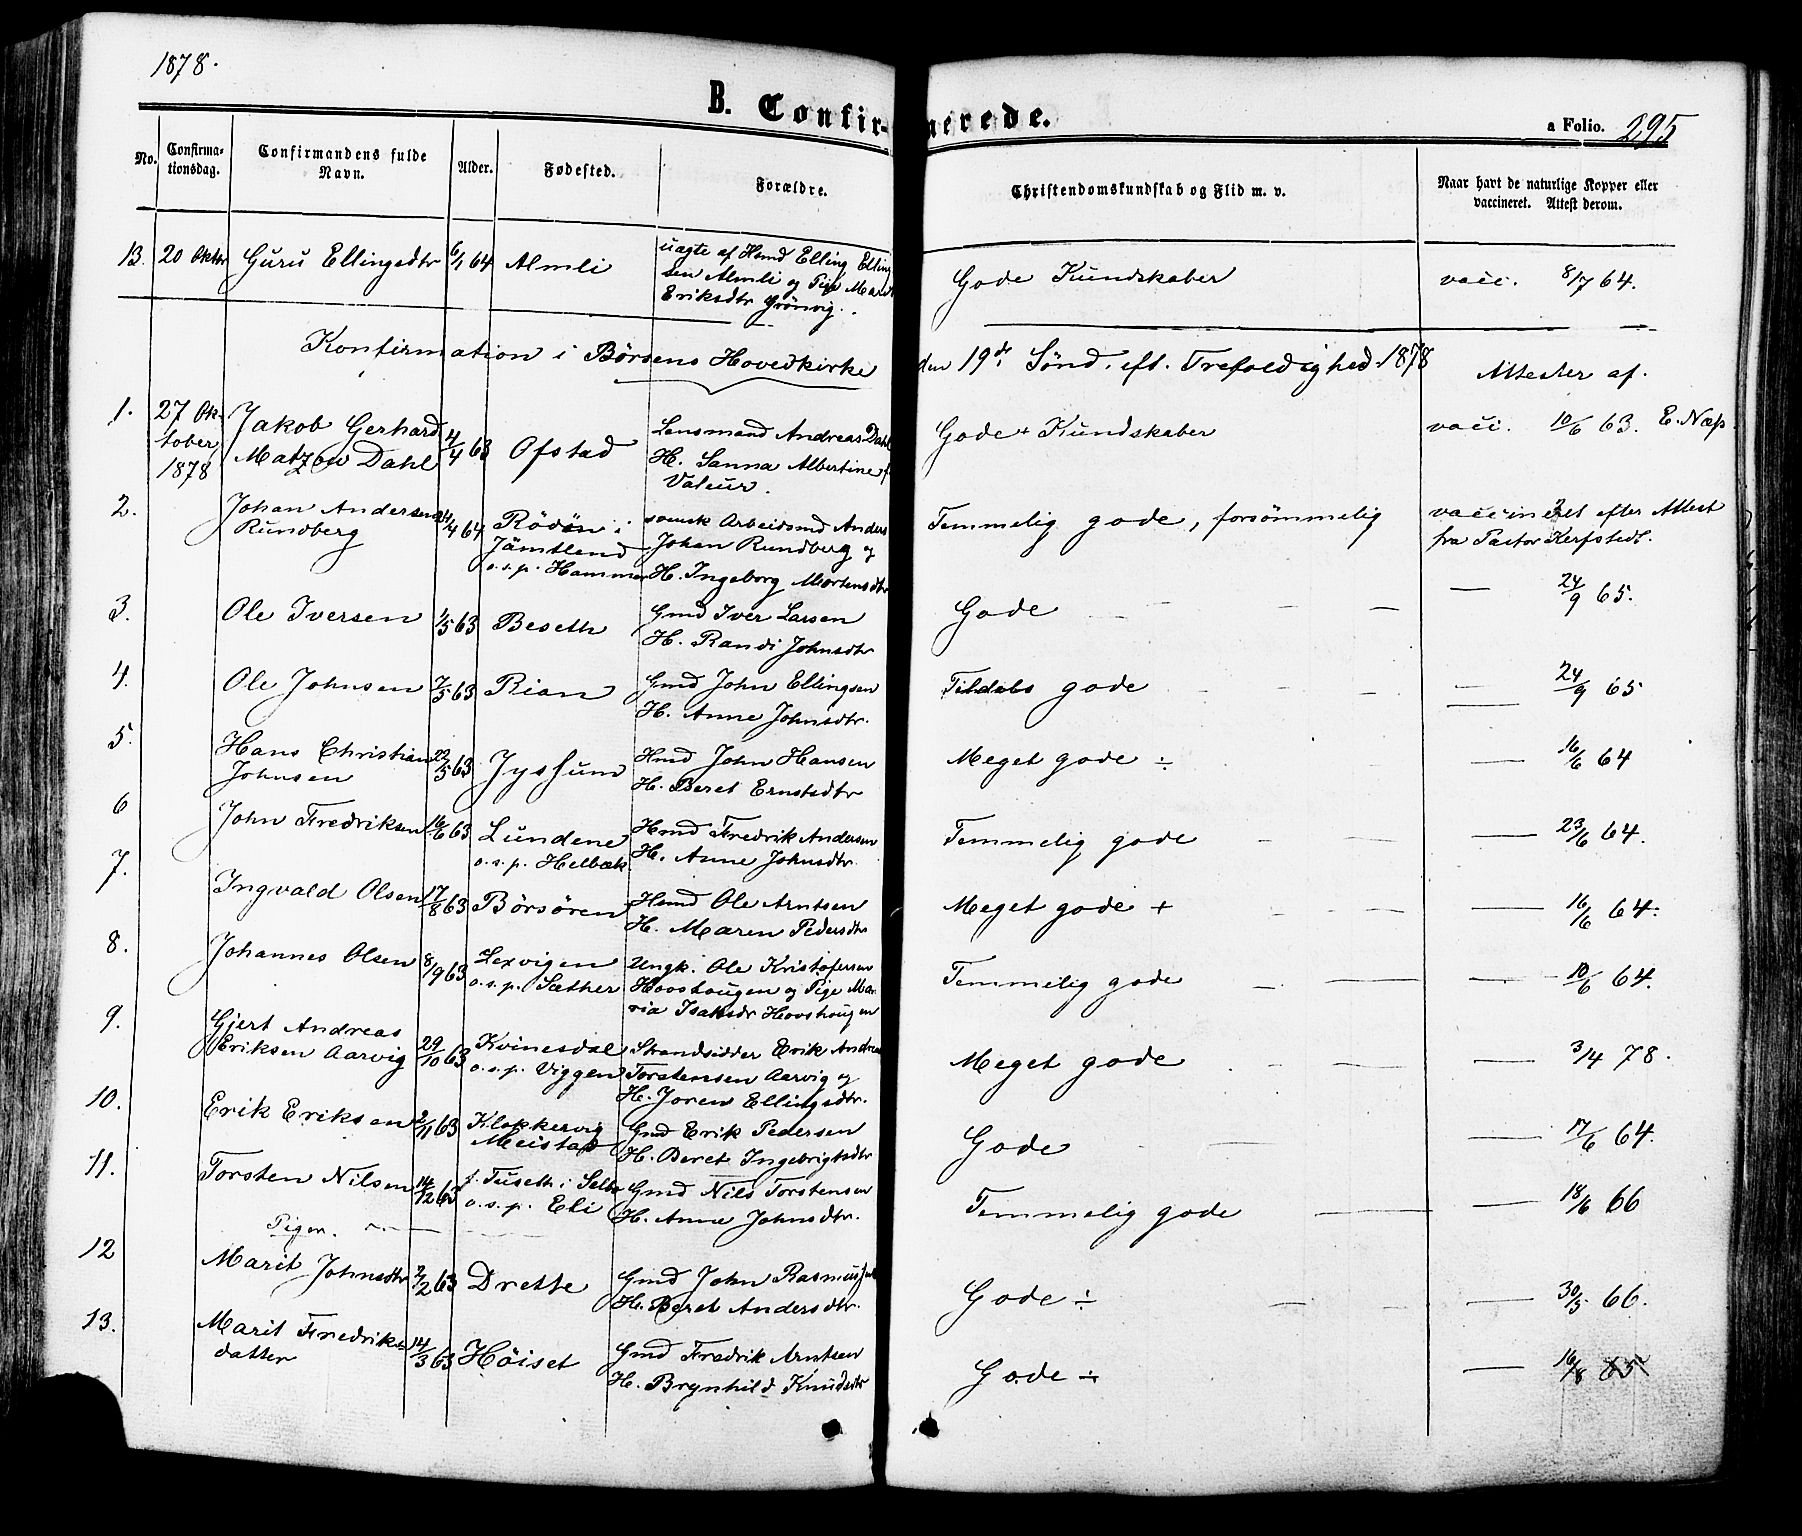 1878.
B. Confirmerede.
a Folio. 295
No. Confirmationsdag. Confirmandens fulde Navn. Alder. Fødested. Forældre. Christendomskundskab og Flid m. v. Naar havt de naturlige Kopper eller vaccineret. Attest derom.
13. 20 Oktbr Guru Ellingsdtr 6/1 64 Almli uægte af Hmd Elling Elling
sen Almli og Pige Marit
Eriksdtr Grönvig. Gode Kundskaber vacc. 8/7 64.
Konfirmation i Börsens Hovedkirke den 19de Sönd. eft. Trefoldighed. 1878 Attester af.
1. 27 Ok-
tober
1878 Jakob Gerhard
Matzow Dahl 4/4 63 Ofstad Lensmand Andreas Dahl
H. Sanna Albertine f.
Valeur. Gode + Kundskaber vacc. 10/6 63. E. Næp
2. Johan Andersen
Rundberg 4/4 64 Rödön i
Jämtland
o.s.p. Hammer svensk Arbeidsmd Anders
Johan Rundberg og
H. Ingeborg Mortensdtr Temmelig gode, forsömmelig vaccineret efter Attest
fra Pastor Kerfstedt.
3. Ole Iversen 1/5 63 Beseth Gmd Iver Larsen
H. Randi Johnsdtr Gode — — — — 24/9 65.
4. Ole Johnsen 7/5 63 Rian Gmd John Ellingsen
H. Anne Johnsdtr. Tildels gode — — — — 24/9 65
5. Hans Christian
Johnsen 22/5 63 Jyssum Hmd John Hansen
H. Beret Ernstsdtr Meget gode ÷ — 16/6 64
6 John Fredriksen 16/6 63 Lundene
o.s.p. Helbæk Hmd Fredrik Andersen
H. Anne Johnsdtr. Temmelig gode — — — — 23/6 64.
7. Ingvald Olsen 17/8 63 Börsören Hmd Ole Arntsen
H. Maren Pedersdtr Meget gode + — — — — 16/6 64.
8. Johannes Olsen 8/9 63 Lexvigen
o.s.p. Sæther Ungk. Ole Kristofersen
Hovshaugen og Pige Ma-
ria Isaksdr Hovshaugen Temmelig gode — — — — 10/6 64.
9. Gjert Andreas
Eriksen Aarvig 29/10 63 Kvinesdal
o.s.p. Viggen Strandsidder Erik Andreas
Torstensen Aarvig og
H. Joren Ellingsdtr. Meget gode — — — — 3/4 78.
10. Erik Eriksen 2/11 63 Klokkervig
Meistad Gmd Erik Pedersen
H. Beret Ingebrigtsdtr Gode — — — 17/6 64.
11. Torsten Nilsen 14/12 63 f. Tuseth i Selbo
o.s.p. Eli Gmd Nils Torstensen
H. Anne Johnsdtr. Temmelig gode — — — 18/6 66
Piger.
12 Marit Johnsdtr 2/2 63 Drette Gmd John Rasmussen
H. Beret Andersdtr. Gode ÷ — — — 30/5 66.
13. Marit Fredriks
datter 14/3 63 Höiset Gmd Fredrik Arntsen
H. Brynhild Knudsdtr Gode ÷ — 16/8 65